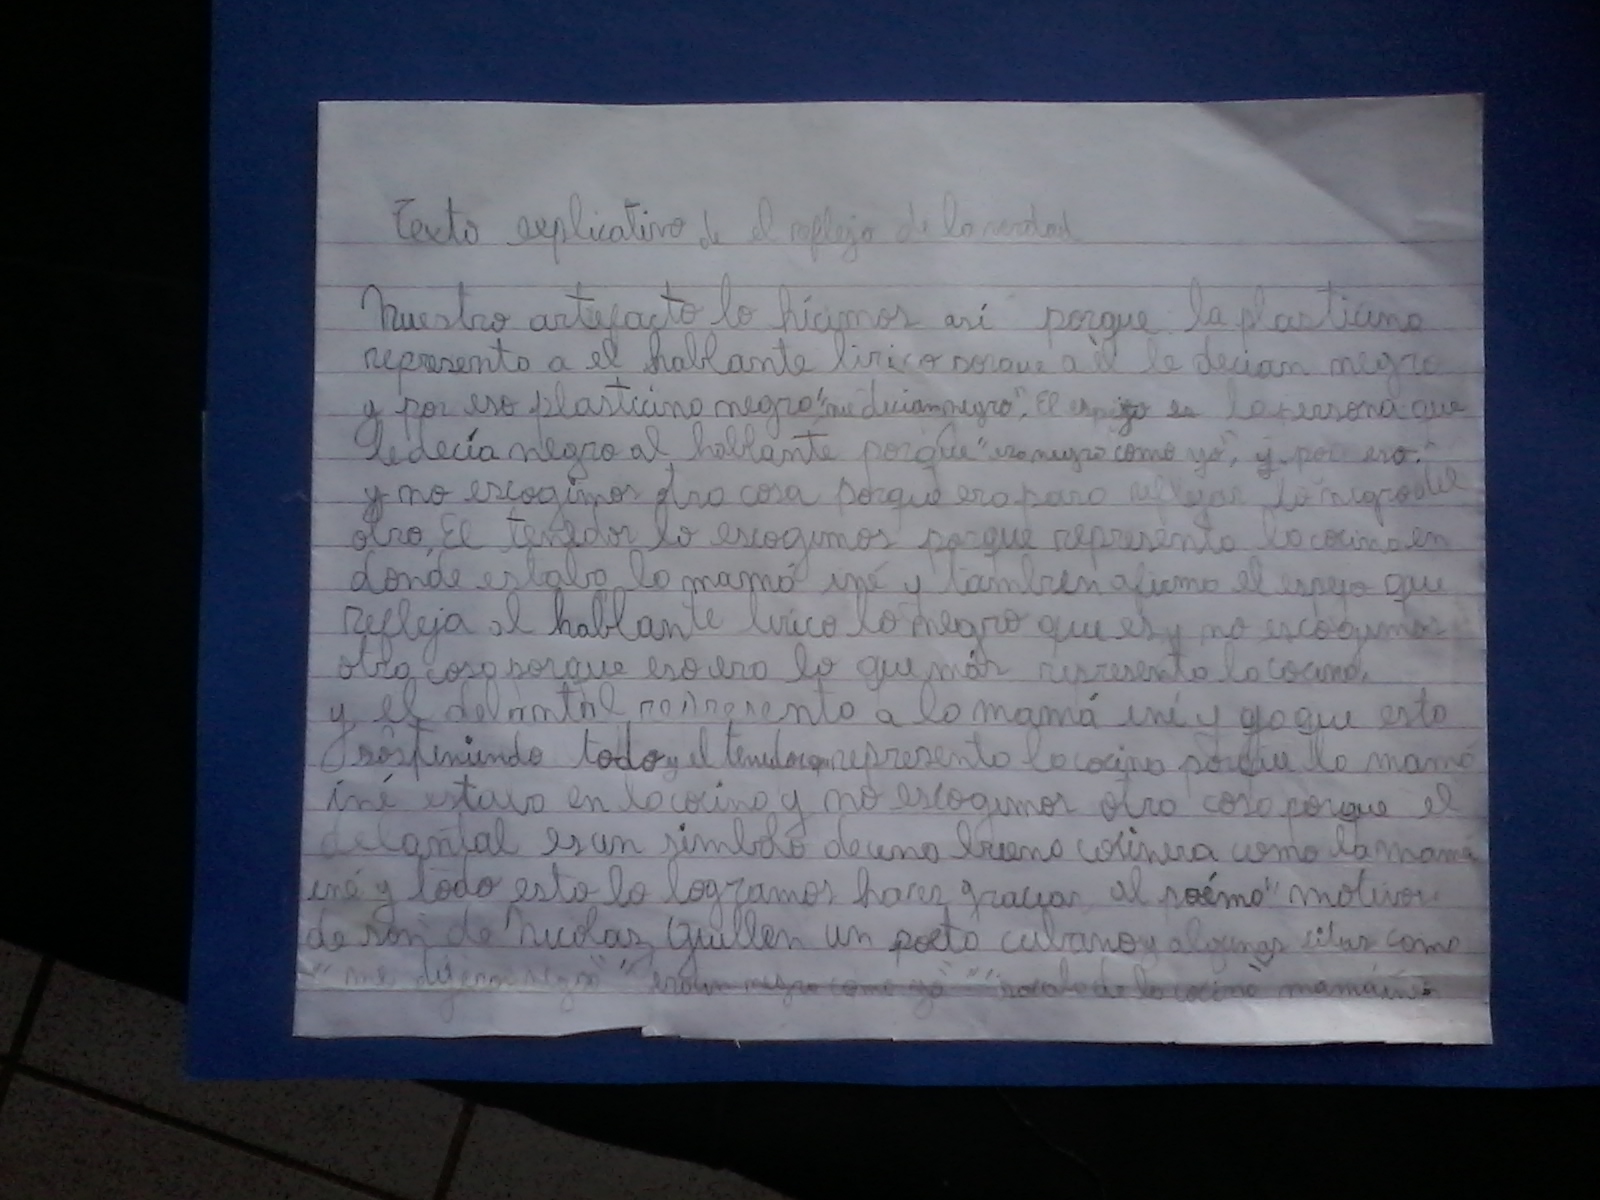 Texto explicativo de el reflejo de la verdad
Nuestro artefacto lo hicimos así porque la plasticina
representa a el hablante lirico porque a él le decian negro
y por eso plasticina negra "me decian negro". El espejo es la persona que
le decía negro al hablante porque "era negro como yo", y por eso.
y no escogimos otra cosa porque era para reflejar lo negro del
otro. El tenedor lo escogimos porque representa la cocina en
donde estaba la mamá iné y tambien afirma el espejo que
refleja al hablante lirico lo negro que es y no escogimos
otra cosa porque eso era lo que más representa la cocina.
y el delantal representa a la mamá iné y ya que esta
sosteniendo todo y el tenedor representa la cocina porque la mamá
iné estava en la cocina y no escogimos otra cosa porque el
delantal es un simbolo de una buena cocinera como la mamá
iné y todo esto lo logramos hacer gracias al poéma "motivos
de son" de Nicolas Guillen un poeta cubano y algunas citas como
"me dijeron negro" "era un negro como yo" "sale de la cocina mamá iné"